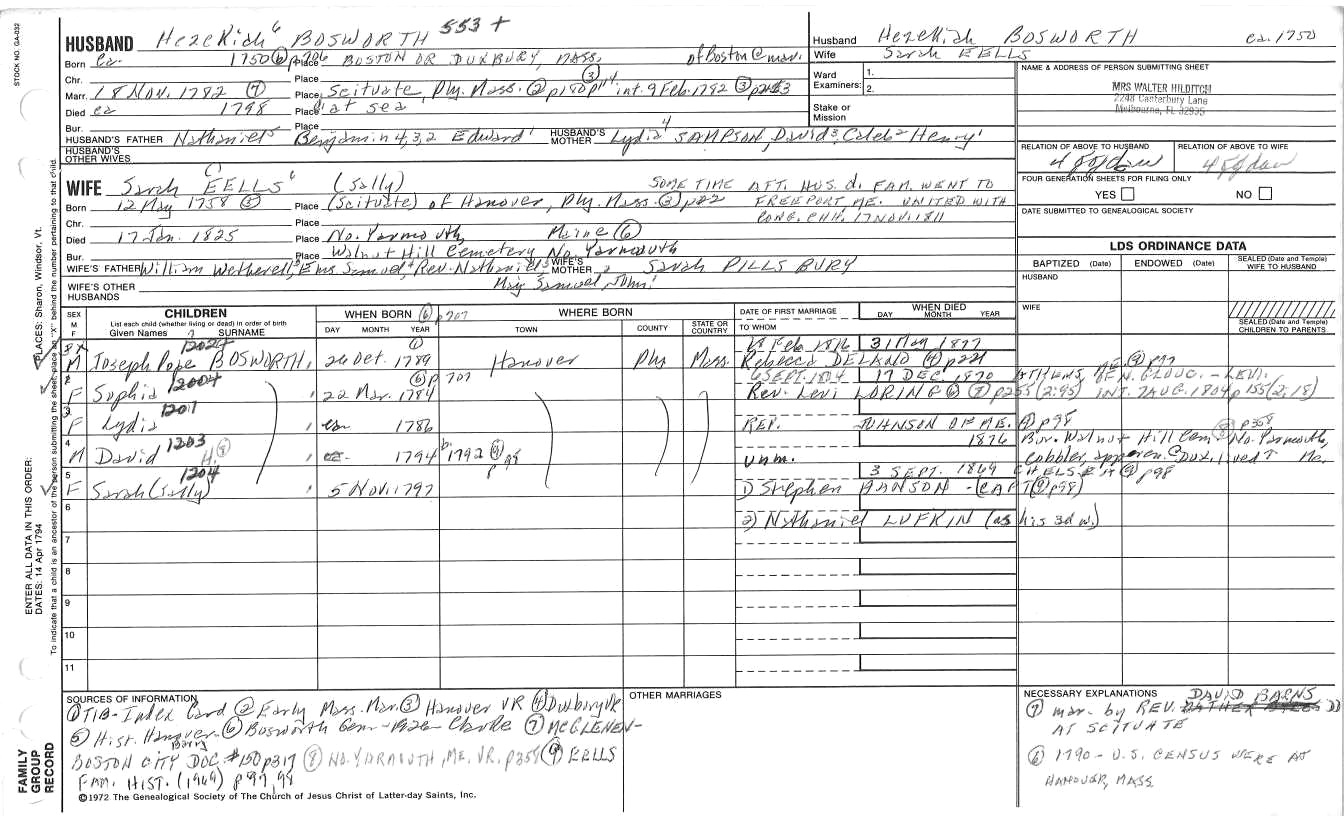 STOCK NO. GA-032
HUSBAND Hezekiah 6 BOSWORTH 553 +
Husband Hezekiah BOSWORTH ca. 1750
Wife Sarah EELLS
Born ca 1750 ⑥ p706 Place BOSTON OR DUXBURY, MASS. of Boston @ mar.
Chr. Place
Marr. 18 Nov. 1782 ⑦ Place Scituate, Ply. Mass. ② p180 ③ p114 int. 9 Feb. 1782 ③
Died ca 1798 Place at sea
Bur. Place
Ward Examiners: 1. 2.
Stake or Mission
NAME & ADDRESS OF PERSON SUBMITTING SHEET
MRS WALTER HILDITCH
2248 Canterbury Lane
Melbourne, FL 32935
HUSBAND'S FATHER Nathaniel 5 Benjamin 4,3,2 Edward 1 HUSBAND'S MOTHER Lydia 4 SAMPSON, David 3, Caleb 2 Henry 1
HUSBAND'S OTHER WIVES
RELATION OF ABOVE TO HUSBAND
RELATION OF ABOVE TO WIFE
FOUR GENERATION SHEETS FOR FILING ONLY
YES NO
DATE SUBMITTED TO GENEALOGICAL SOCIETY
WIFE Sarah EELLS 6 (Sally)
SOME TIME AFT. HUS. d. FAM. WENT TO
FREEPORT ME. UNITED WITH
CONG. CHH. 17 NOV. 1811
Born 12 May 1758 ⑤ Place (Scituate) of Hanover, Ply. Mass. ③
Chr. Place
Died 17 Jan. 1825 Place No. Yarmouth, Maine ⑥
Bur. Place Walnut Hill Cemetery No. Yarmouth
WIFE'S FATHER William Wetherell 5, Ens. Samuel 4 Rev. Nathaniel 3 WIFE'S MOTHER Sarah PILLSBURY
Maj. Samuel 2, John 1
WIFE'S OTHER HUSBANDS
LDS ORDINANCE DATA
BAPTIZED (Date) ENDOWED (Date) SEALED (Date and Temple) WIFE TO HUSBAND
HUSBAND
WIFE
SEALED (Date and Temple) CHILDREN TO PARENTS
SEX M F
CHILDREN
List each child (whether living or dead) in order of birth
Given Names SURNAME
WHEN BORN ⑥ p707
DAY MONTH YEAR
WHERE BORN
TOWN COUNTY STATE OR COUNTRY
DATE OF FIRST MARRIAGE
TO WHOM
WHEN DIED
DAY MONTH YEAR
1 X M Joseph Pope 7 BOSWORTH, 26 Oct. 1789 ① Hanover Ply Mass. Feb 1816 31 May 1877
Rebecca DELANO ④ p221
2 F Sophia " 22 Mar. 1784 ⑥ p 707 6 SEPT. 1804 17 DEC. 1870 ATHENS, ME. ⑨ p97
Rev. Levi LORING ⑥ ⑧ p255 (2:95) INT. 7 AUG. 1804 p 155 (2:18)
3 F Lydia 1201 " ca 1786 REP. JOHNSON OF ME. ⑨ p98
4 M David 1203 H. ⑧ " ca. 1794 b. 1792 ⑨ p98 unm. 1876 Bur. Walnut Hill Cem. No. Yarmouth, ⑧ p358
Cobbler, apparen. @ Dux. lived Me.
5 F Sarah (Sally) 1204 " 5 Nov. 1797 3 SEPT. 1869 CHELSEA ⑨ p98
1) Stephen HANSON - (CAPT ⑨ p98)
6 2) Nathaniel LUFKIN (as his 3d w.)
7
8
9
10
11
ENTER ALL DATA IN THIS ORDER:
DATES: 14 Apr 1794
PLACES: Sharon, Windsor, Vt.
To indicate that a child is an ancestor of the person submitting the sheet, place an "X" behind the number pertaining to that child.
FAMILY GROUP RECORD
SOURCES OF INFORMATION
① TIB-Index Card ② Early Mass. Mar. ③ Hanover VR ④ Duxbury VR
⑤ Hist. Hanover Barry ⑥ Bosworth Gen-1926-Clarke ⑦ McGLENEN-
BOSTON CITY DOC. #150 p317 ⑧ NO. YARMOUTH, ME. VR. p358 ⑨ EELLS
FAM. HIST. (1969) p 97, 98
©1972 The Genealogical Society of The Church of Jesus Christ of Latter-day Saints, Inc.
OTHER MARRIAGES
NECESSARY EXPLANATIONS
⑦ mar. by REV. DAVID BARNS
AT SCITUATE
⑥ 1790 - U.S. CENSUS WERE AT
HANOVER, MASS